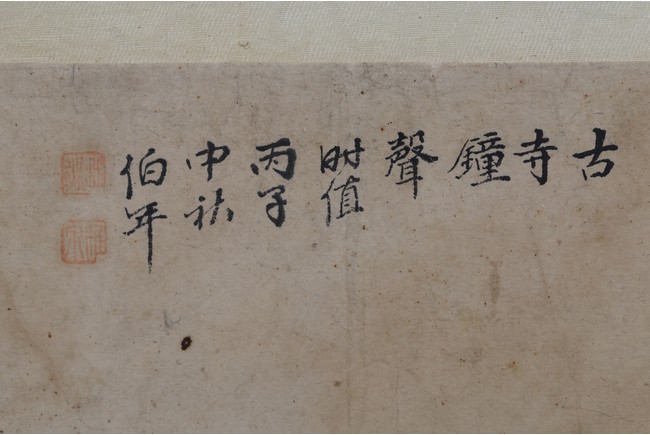 古
寺
鐘
聲
時值
丙子
中秋
伯年